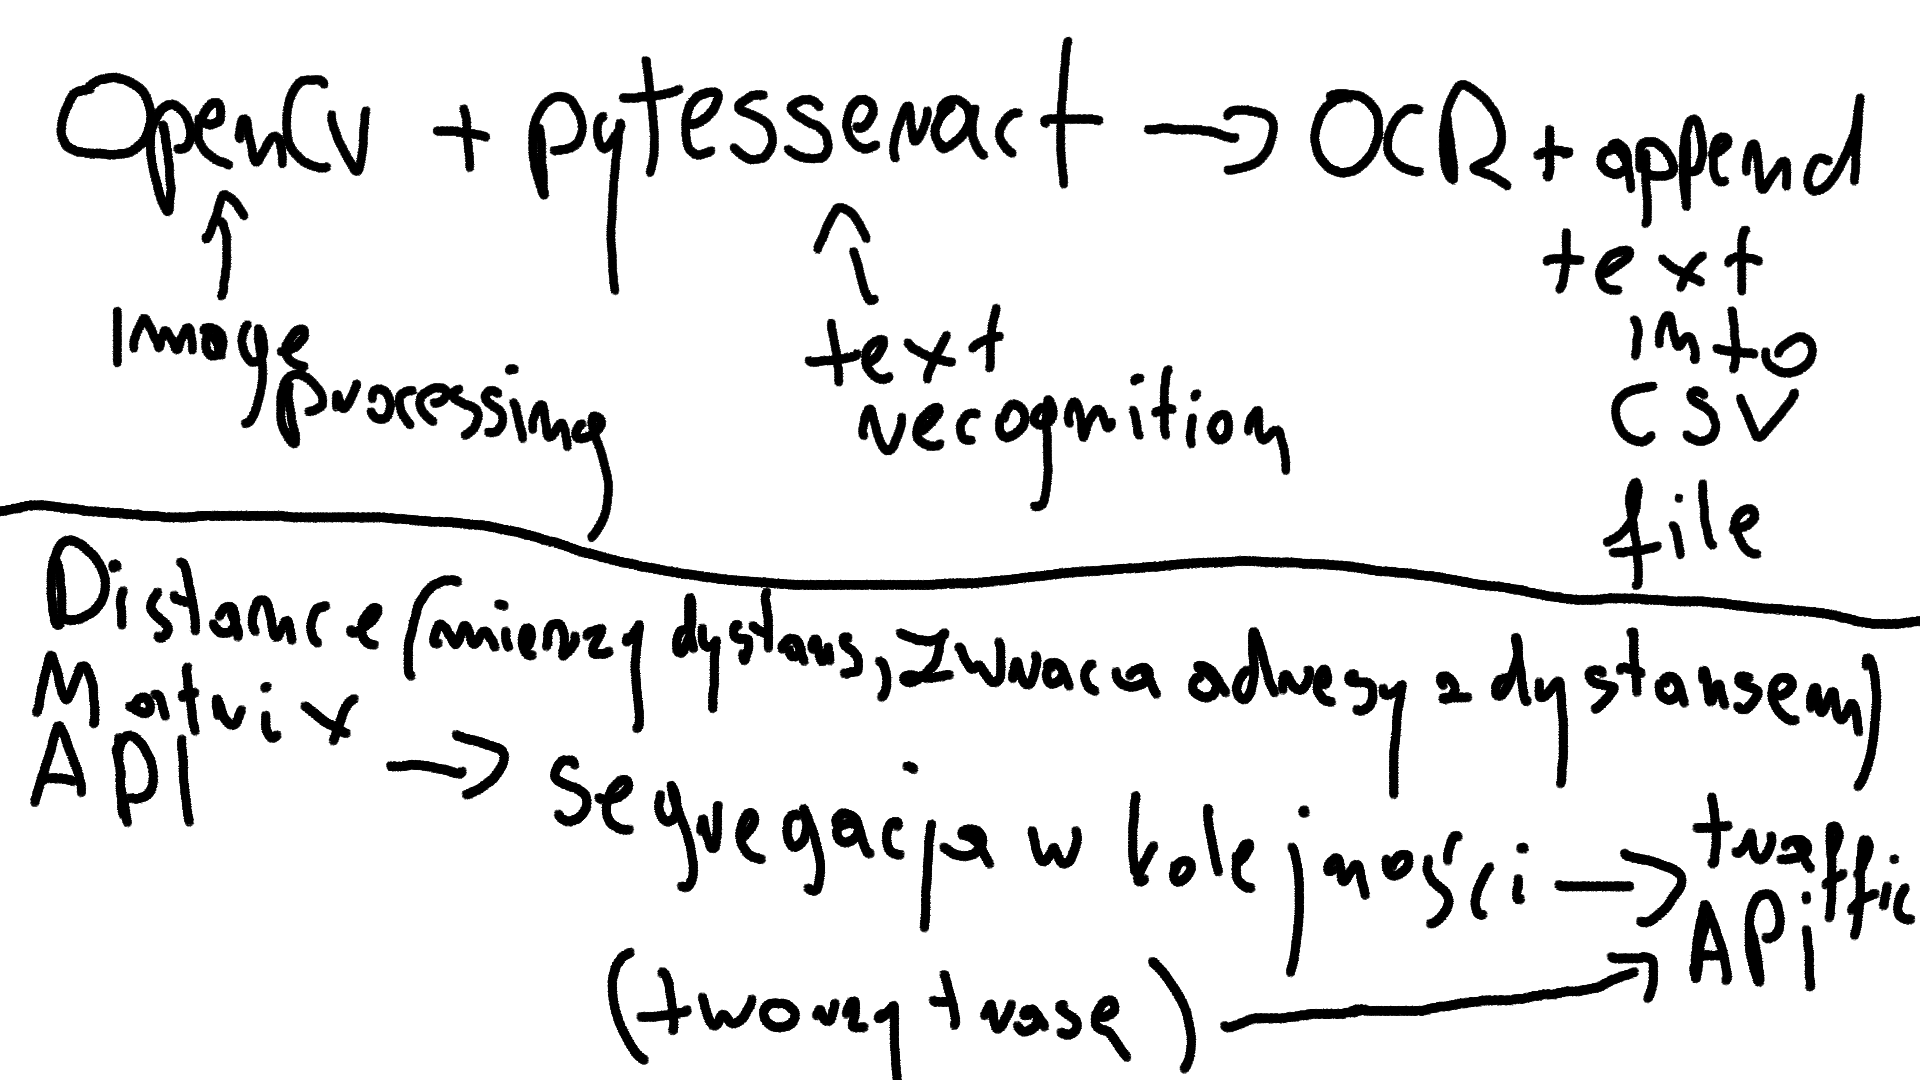 OpenCV + pytesseract → OCR + append
text
into
csv
file
Image
processing
text
recognition
Distance (mierzy dystans, zwraca adresy z dystansem)
Matrix
API → segregacja w kolejności → traffic
API
(tworzy trasę)